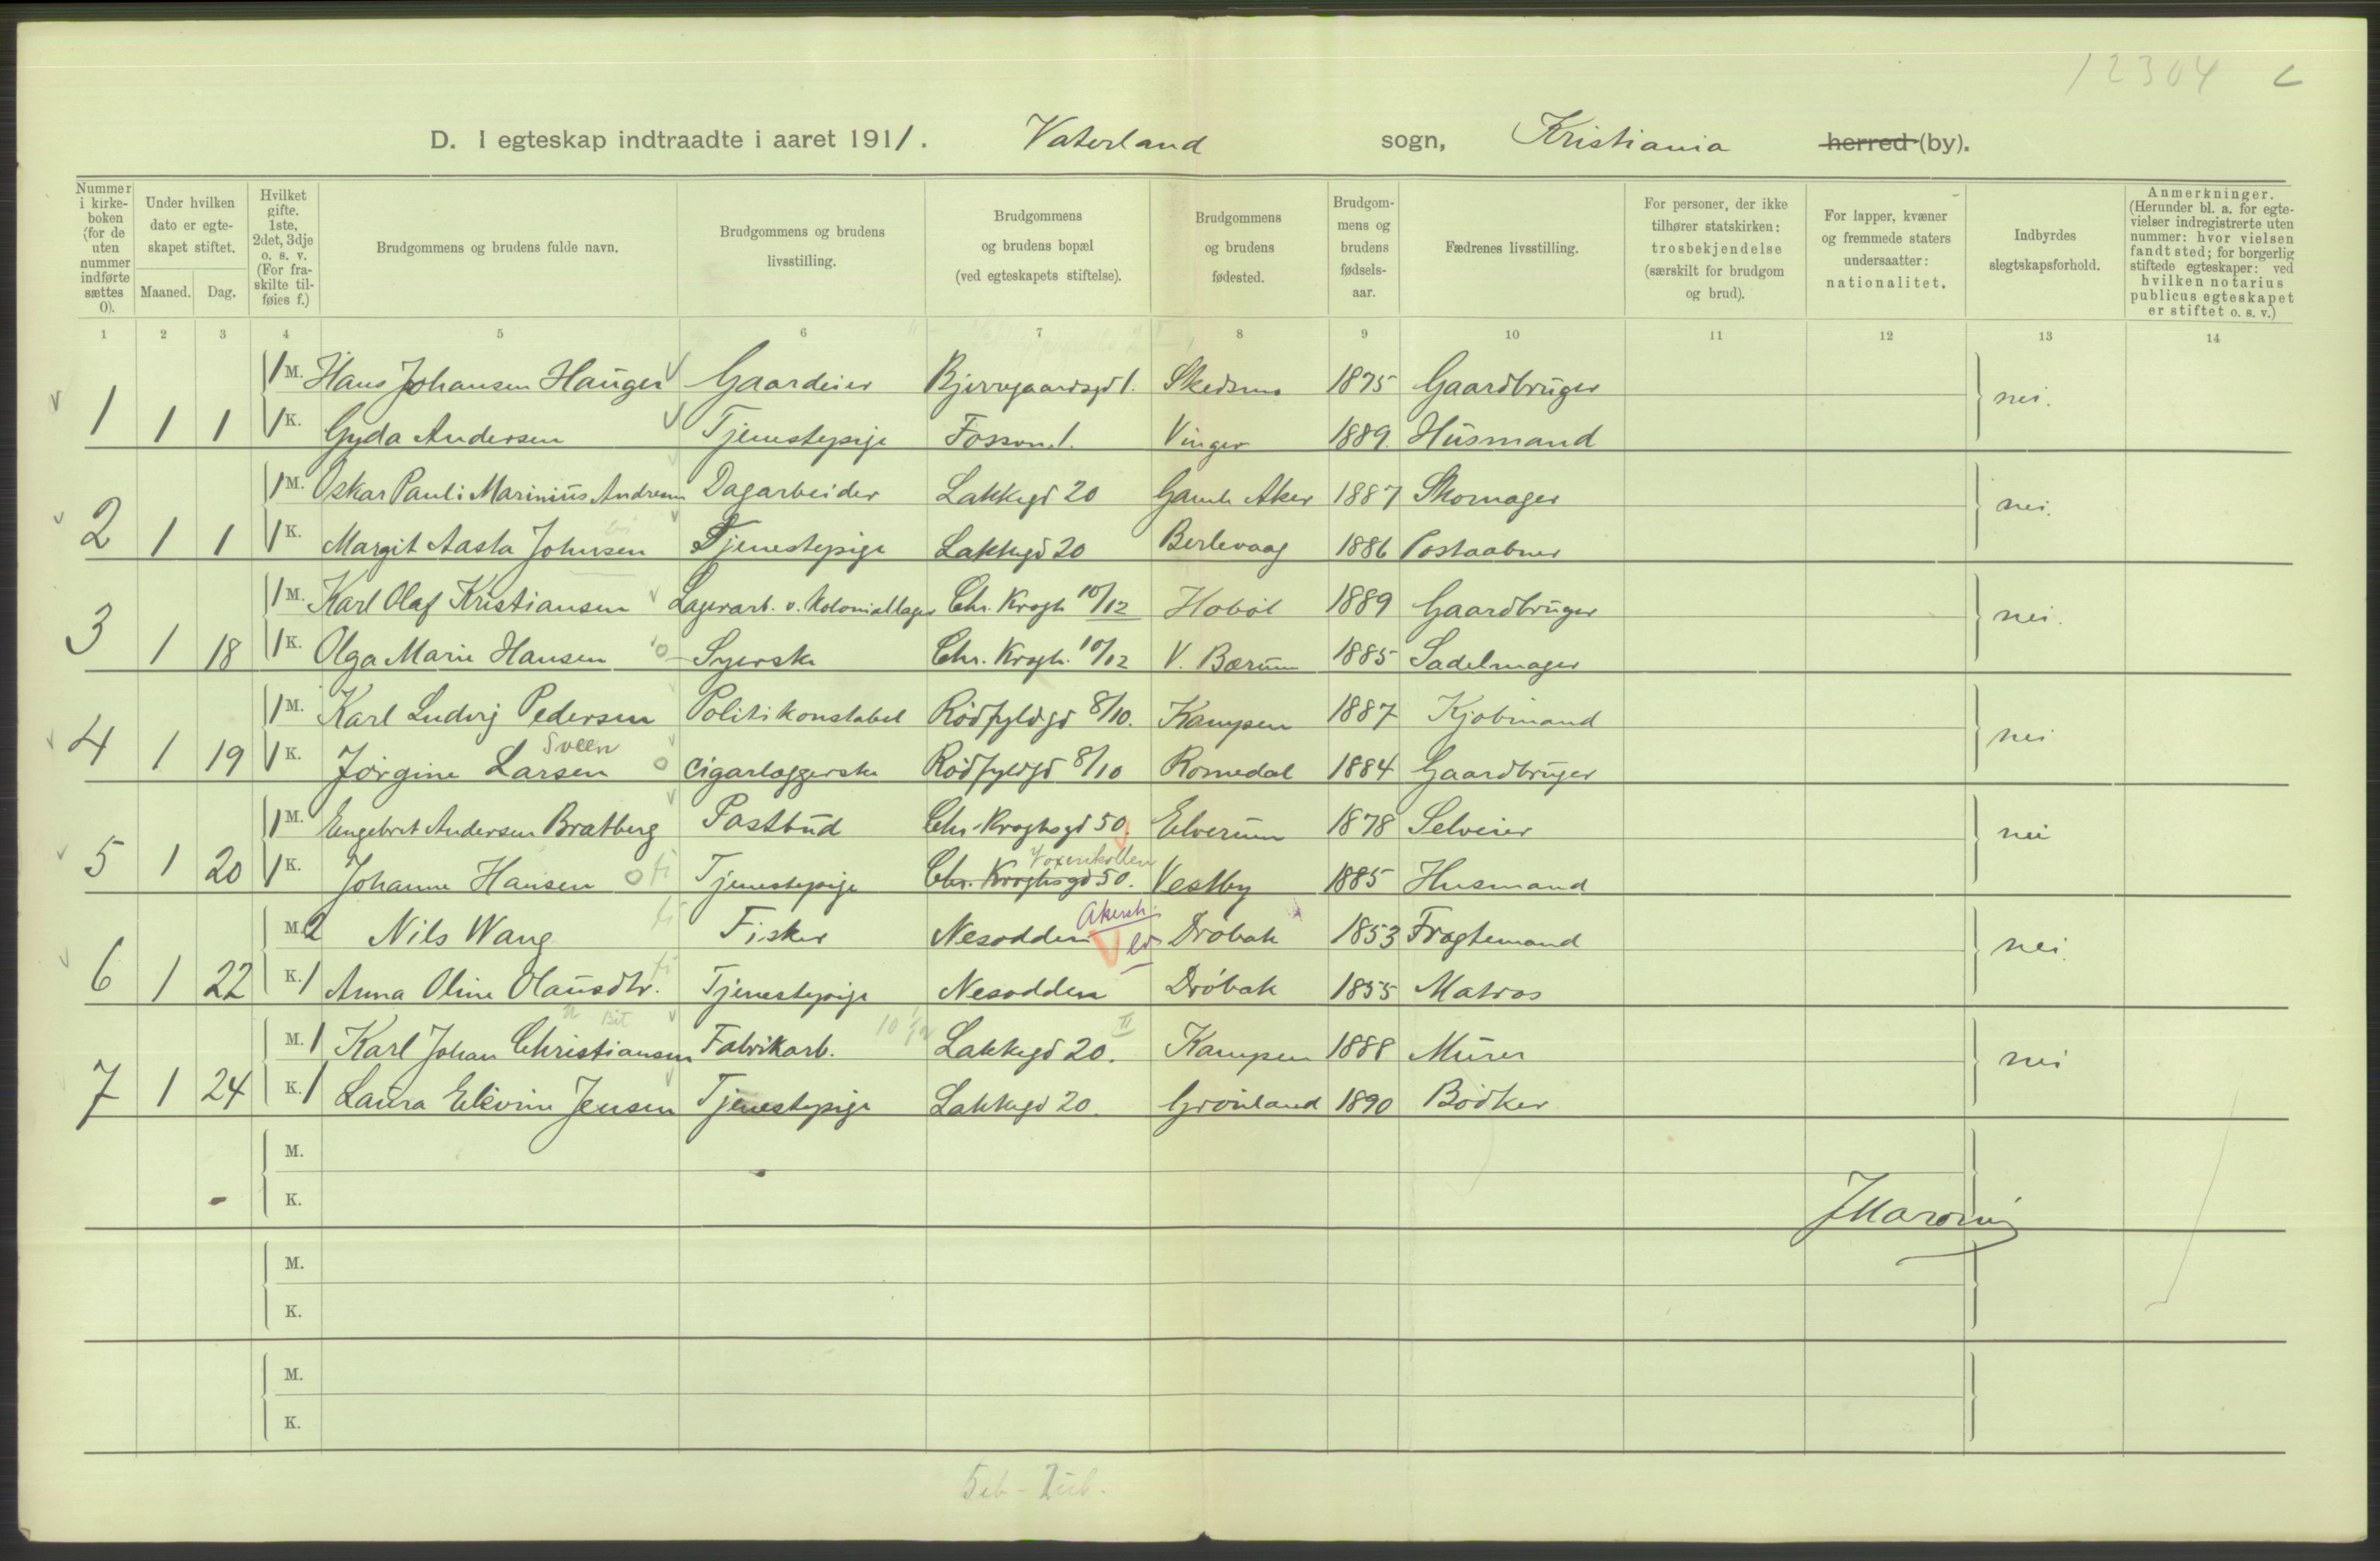 12304
D. I egteskap indtraadte i aaret 1911. Vaterland sogn, Kristiania herred (by).
Nummer i kirkeboken (for de uten nummer indførte sættes 0).
Under hvilken dato er egteskapet stiftet.
Maaned. Dag.
Hvilket gifte. 1ste, 2det, 3dje o. s. v. (For fraskilte tilføies f.)
Brudgommens og brudens fulde navn.
Brudgommens og brudens livsstilling.
Brudgommens og brudens bopæl (ved egteskapets stiftelse).
Brudgommens og brudens fødested.
Brudgommens og brudens fødselsaar.
Fædrenes livsstilling.
For personer, der ikke tilhører statskirken: trosbekjendelse (særskilt for brudgom og brud).
For lapper, kvæner og fremmede staters undersaatter: nationalitet.
Indbyrdes slegtskapsforhold.
Anmerkninger. (Herunder bl. a. for egtevielser indregistrerte uten nummer: hvor vielsen fandt sted; for borgerlig stiftede egteskaper: ved hvilken notarius publicus egteskapet er stiftet o. s. v.)
1 2 3 4 5 6 7 8 9 10 11 12 13 14
1 M. Hans Johansen Hauger Gaardeier Bjerregaardsgd 1. Skedsmo 1875 Gaardbruger
1 1 1 1 K. Gyda Andersen Tjenestepige Fossvn. 1. Vinger 1889. Husmand nei.
1 M. Oskar Pauli Marinius Andresen Dagarbeider Lakkegd 20 Gamle Aker 1887 Skomager
2 1 1 1 K. Margit Aasta Johnsen Tjenestepige Lakkegd 20 Berlevaag 1886 Postaabner nei.
1 M. Karl Olaf Kristiansen Lagerarb. v. Koloniallager Chr. Krogh 10/12 Hobøl 1889 Gaardbruger
3 1 18 1 K. Olga Marie Hansen Syerske Chr. Krogh. 10/12 V. Bærum 1885 Sadelmager nei.
1 M. Karl Ludvig Pedersen Politikonstabel Rødfyldgd 8/10. Kampen 1887 Kjøbmand
Sveen
4 1 19 1 K. Jørgine Larsen Cigarlæggerske Rødfyldgd 8/10 Romedal 1884 Gaardbruger nei
1 M. Engebret Andersen Bratberg Postbud Chr. Kroghsgd 50. Elverum 1878 Selveier
Voxenkollen
5 1 20 1 K. Johanne Hansen Tjenestepige Chr. Kroghsgd 50. Vestby 1885 Husmand nei
Akersh.
M. 2 Nils Wang Fisker Nesodden Drøbak 1853 Fragtemand
6 1 22 K. 1 Anna Oline Olausdtr. Tjenestepige Nesodden Drøbak 1855 Matros nei.
M. 1 Karl Johan Christiansen Fabrikarb. Lakkegd 20. II Kampen 1888 Murer
7 1 24 K. 1 Laura Elevine Jensen Tjenestepige Lakkegd 20. Grønland 1890 Bødker nei
M.
K.
M.
K.
M.
K.